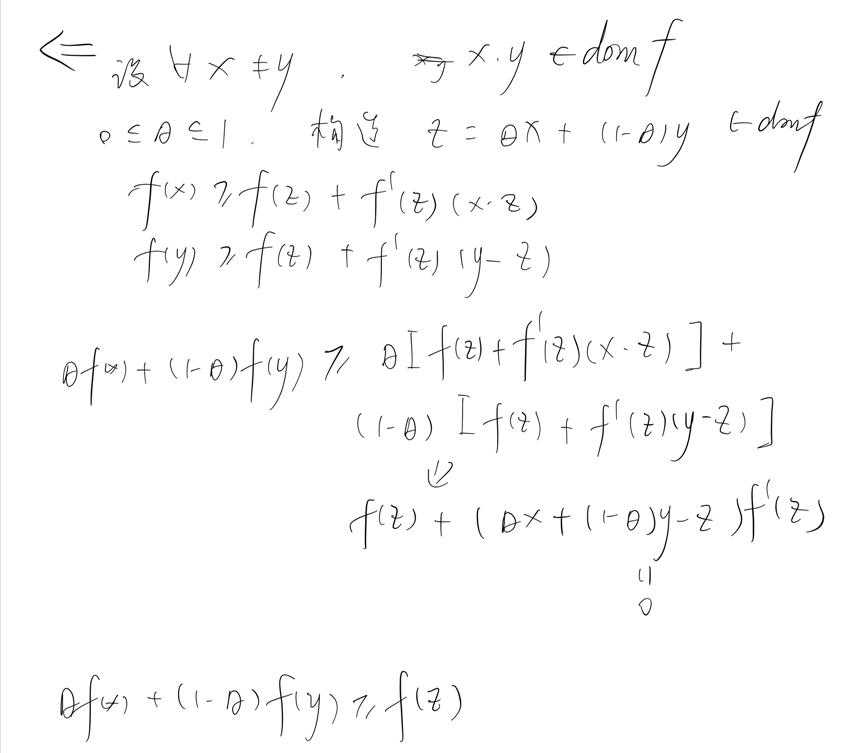 ⇐ 设 ∀ x ≠ y . x.y ∈ dom f
0 ≤ θ ≤ 1. 构造 z = θx + (1-θ)y ∈ domf
f(x) ≥ f(z) + f'(z)(x-z)
f(y) ≥ f(z) + f'(z)(y-z)
θf(x) + (1-θ)f(y) ≥ θ[f(z) + f'(z)(x-z)] +
(1-θ)[f(z) + f'(z)(y-z)]
⇓
f(z) + (θx + (1-θ)y - z)f'(z)
=
0
θf(x) + (1-θ)f(y) ≥ f(z)